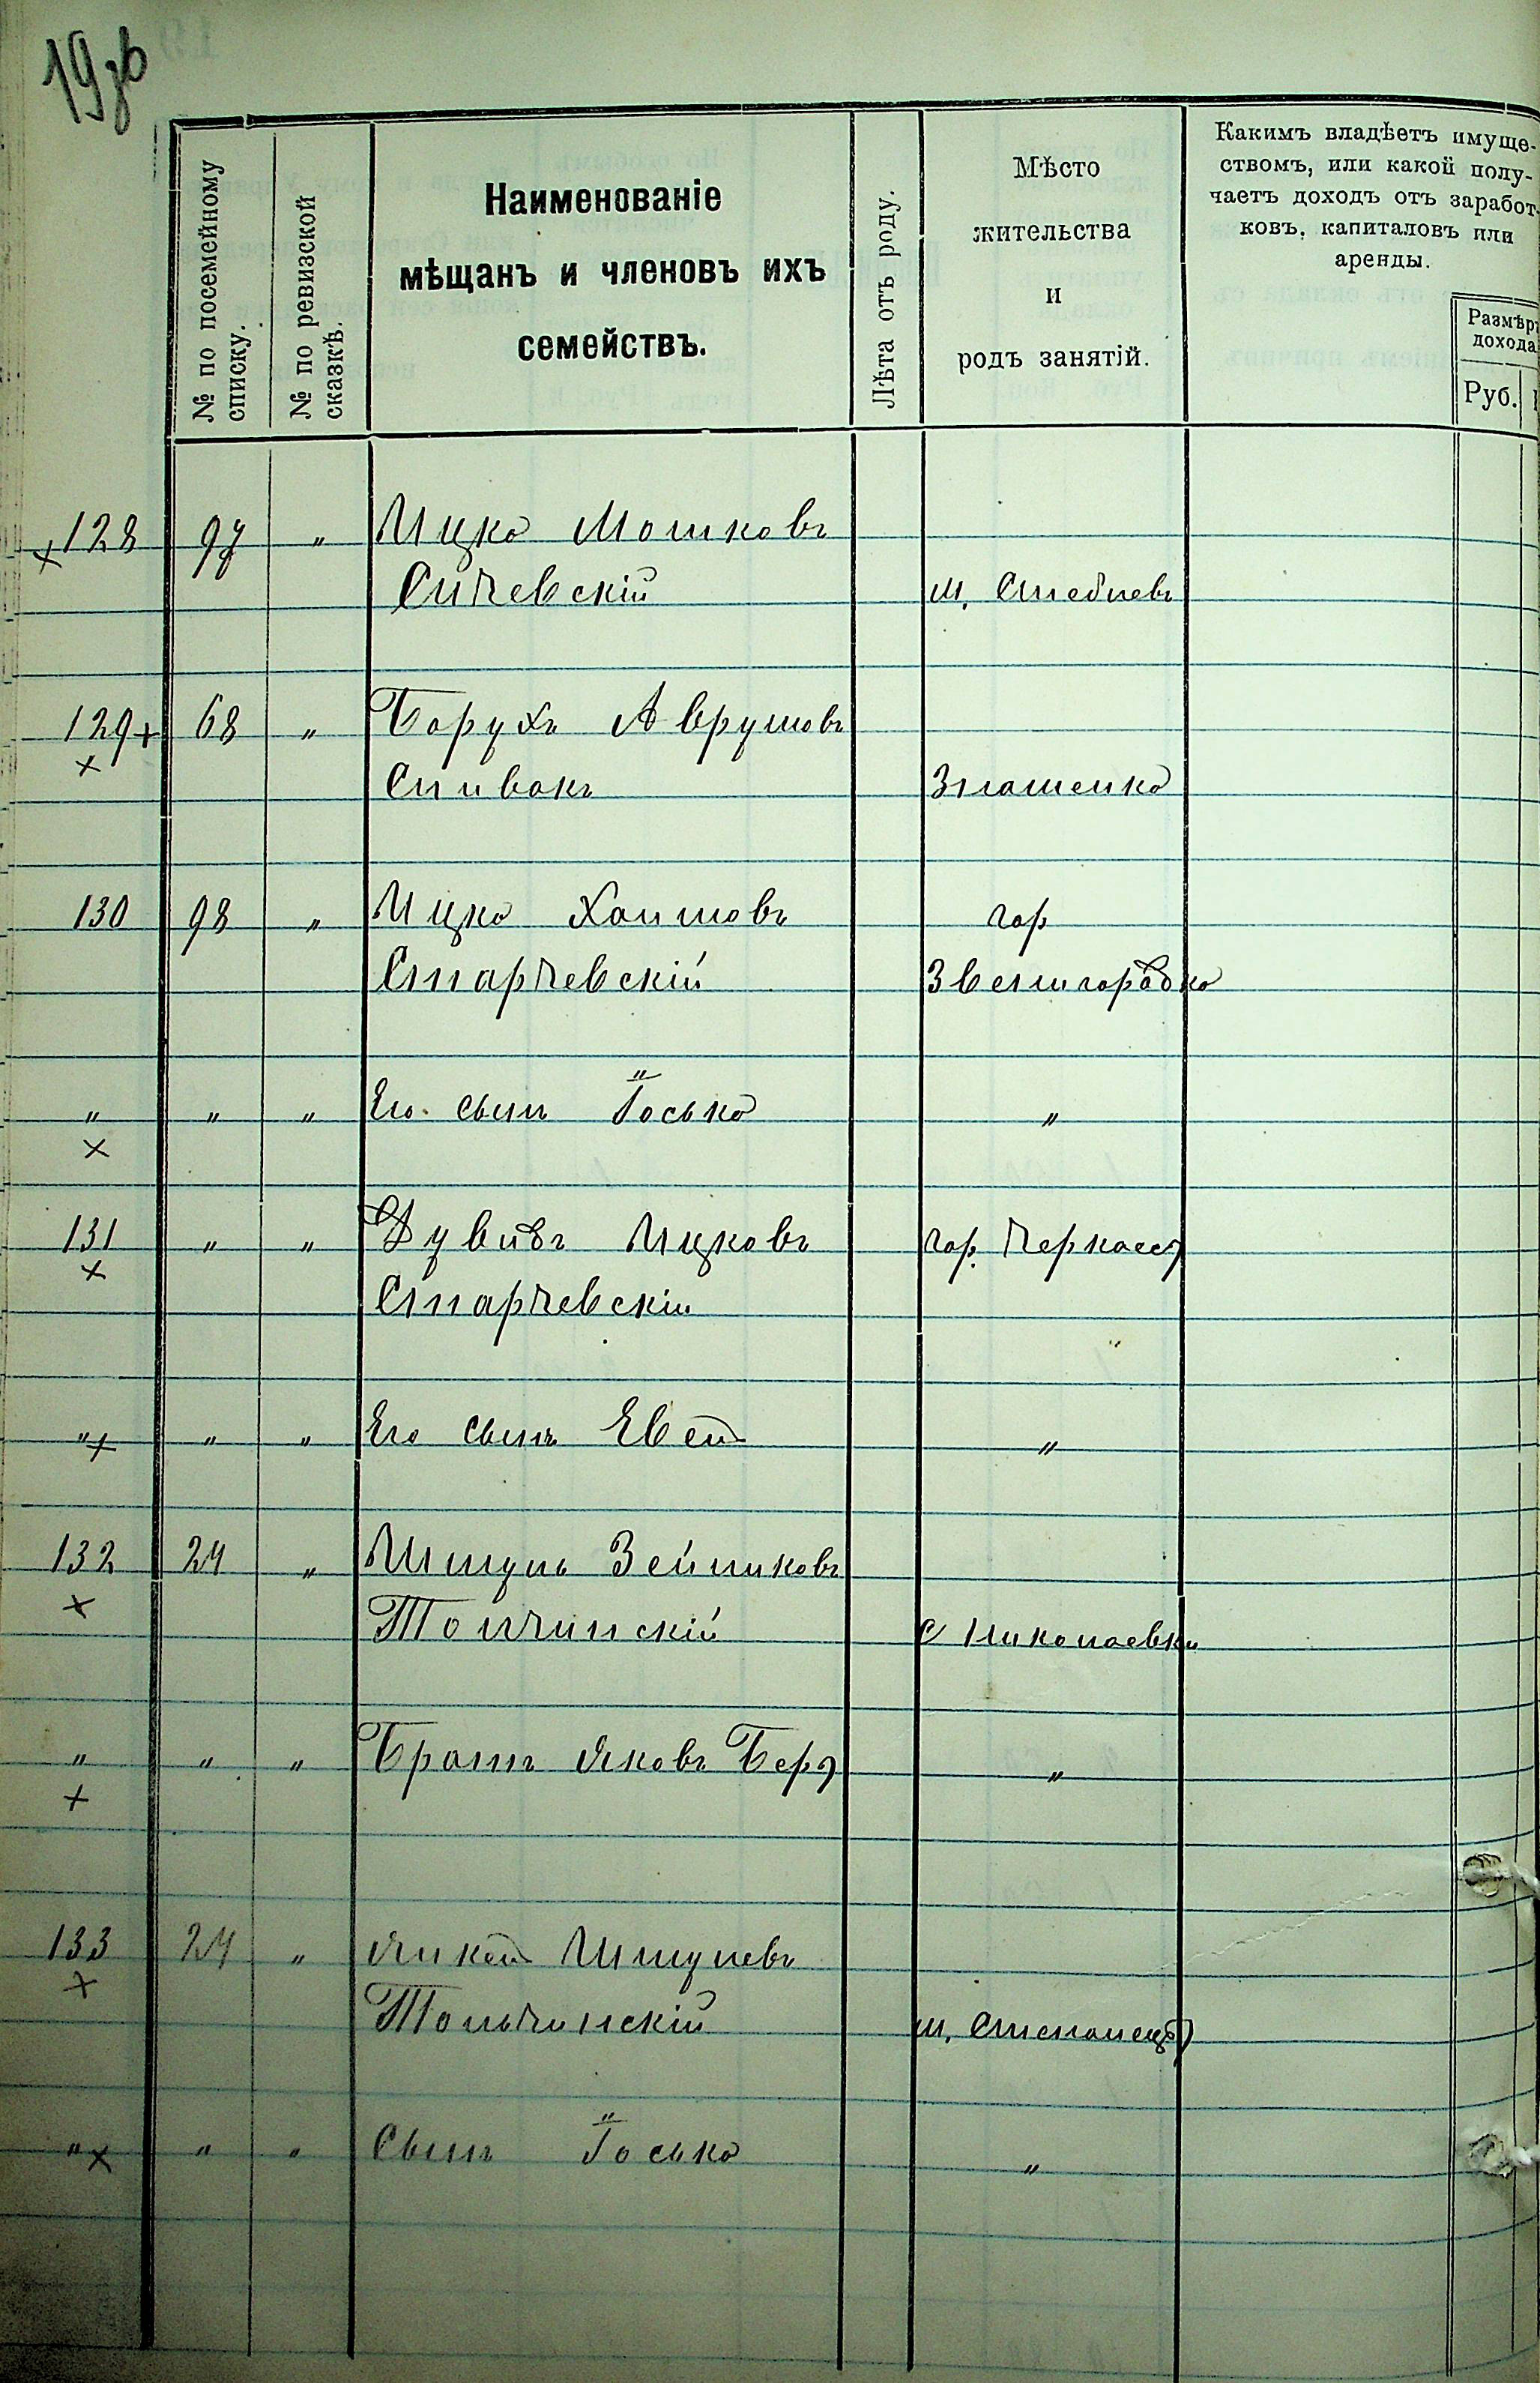 19зв
№ по посемейному списку.
№ по ревизской сказкѣ.
Наименованіе
мѣщанъ и членовъ ихъ
семействъ.
Лѣта отъ роду.
Мѣсто
жительства
и
родъ занятій.
Какимъ владѣетъ имуще-
ствомъ, или какой полу-
чаетъ доходъ отъ заработ-
ковъ, капиталовъ или
аренды.
Размѣръ
дохода
Руб.
128 97 " Ицко Мошковъ
Сичевскій м. Стеблевъ
129 68 " Борухъ Аврумовъ
Спивакъ
130 98 " Ицко Хаимовъ гор
Старчевскій Звенигородка
" " " Его сынъ Іосько "
131 " " Дувидъ Ицковъ гор. Черкассы
Старчевскій "
" " " Его сынъ "
132 24 " Шмуль Зейликовъ
Толчинскій с Николаевки
" " " Братъ Яковъ Беръ "
133 24 " Янкель Шмулевъ
Тольчинскій м. Степанецъ
" " " Сынъ Іосько "